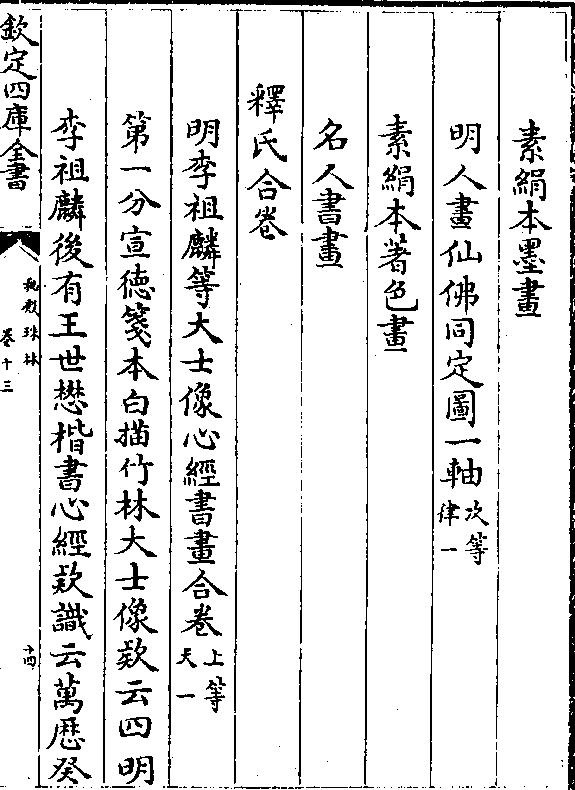 素絹本墨畫
明人畫仙佛同定圖一軸次等律一
素絹本著色畫
名人書畫
釋氏合卷
明李祖麟等大士像心經書畫合卷上等天一
第一分宣徳箋本白描竹林大士像欵云四明
李祖麟後有王世懋楷書心經欵識云萬厯癸
欽定四庫全書
秘殿珠林
卷十三
十四